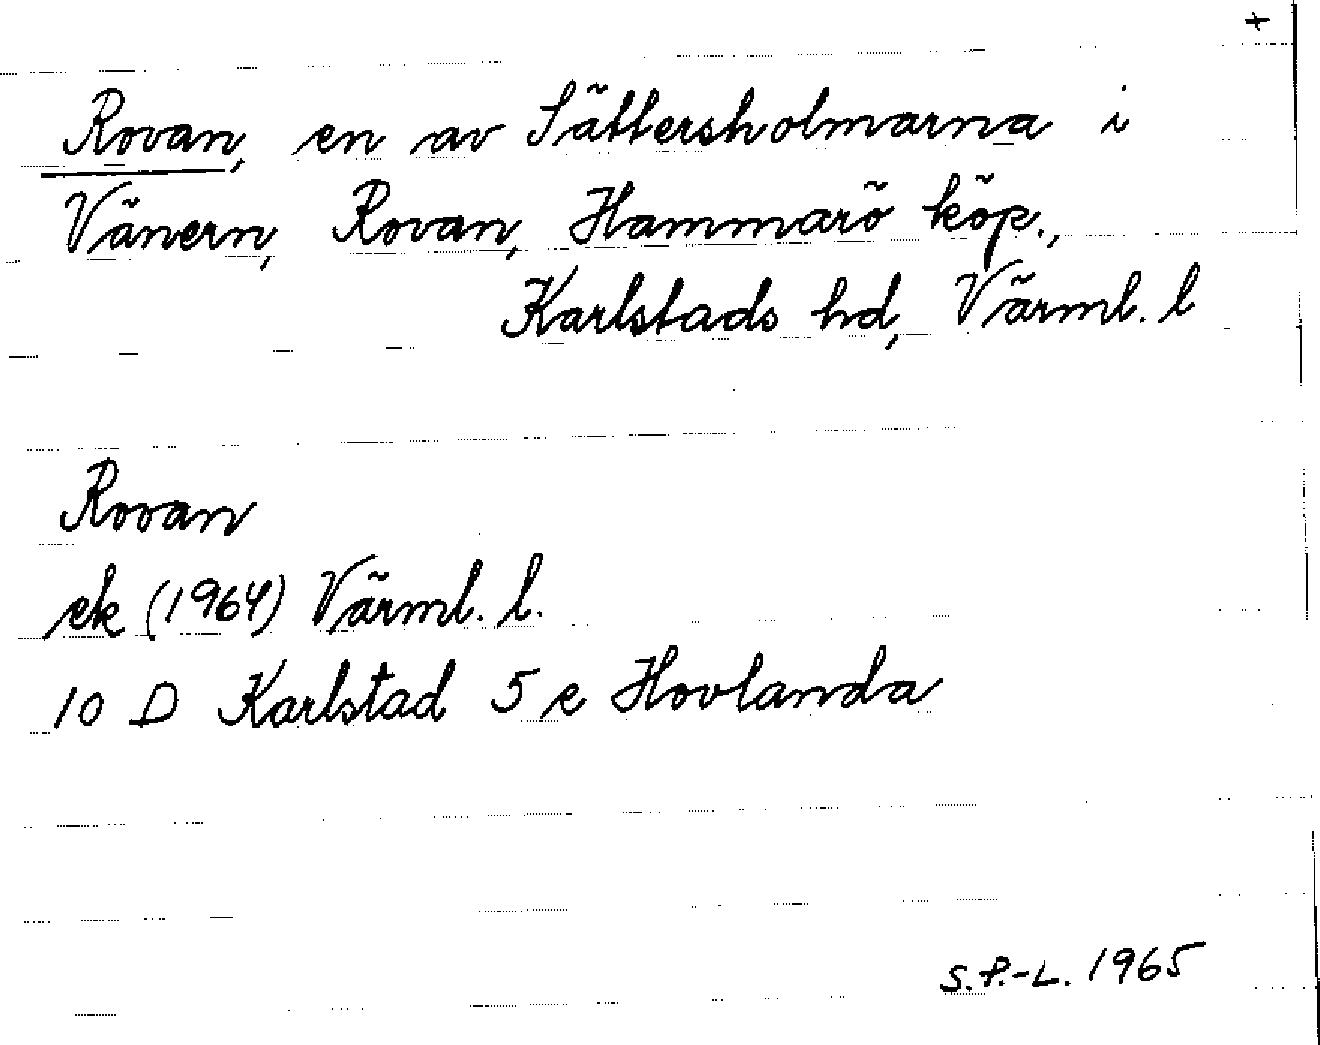 +
Rovan, en av Sättersholmarna i
Vänern, Rovan, Hammarö köp.,
Karlstads hd, Värml. l
Rovan
ek (1964) Värml. l.
10 D Karlstad 5 e Hovlanda
S.P.-L. 1965